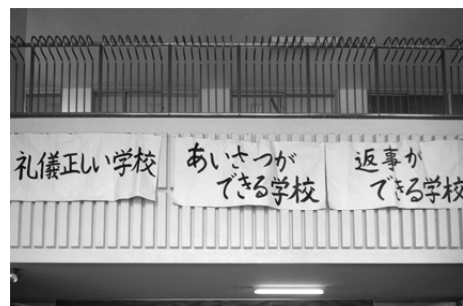 礼儀正しい学校
あいさつが
できる学校
返事が
できる学校